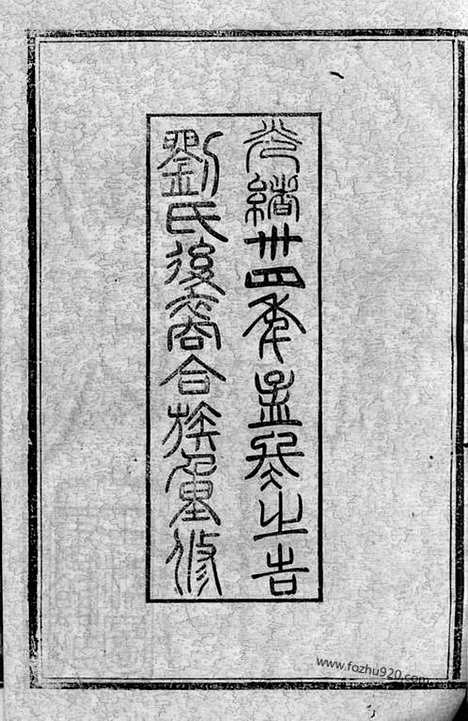 光緒卅四年孟冬之吉
劉氏後裔合族重修
www.fozhu920.com